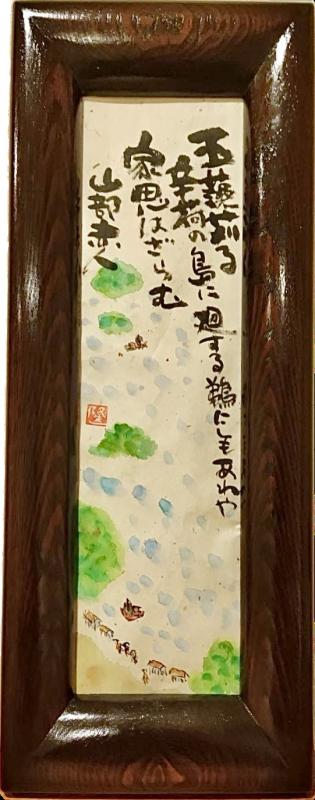 玉藻苅る
辛荷の島に廻する鵜にしもあれや
家思はざらむ
山部赤人